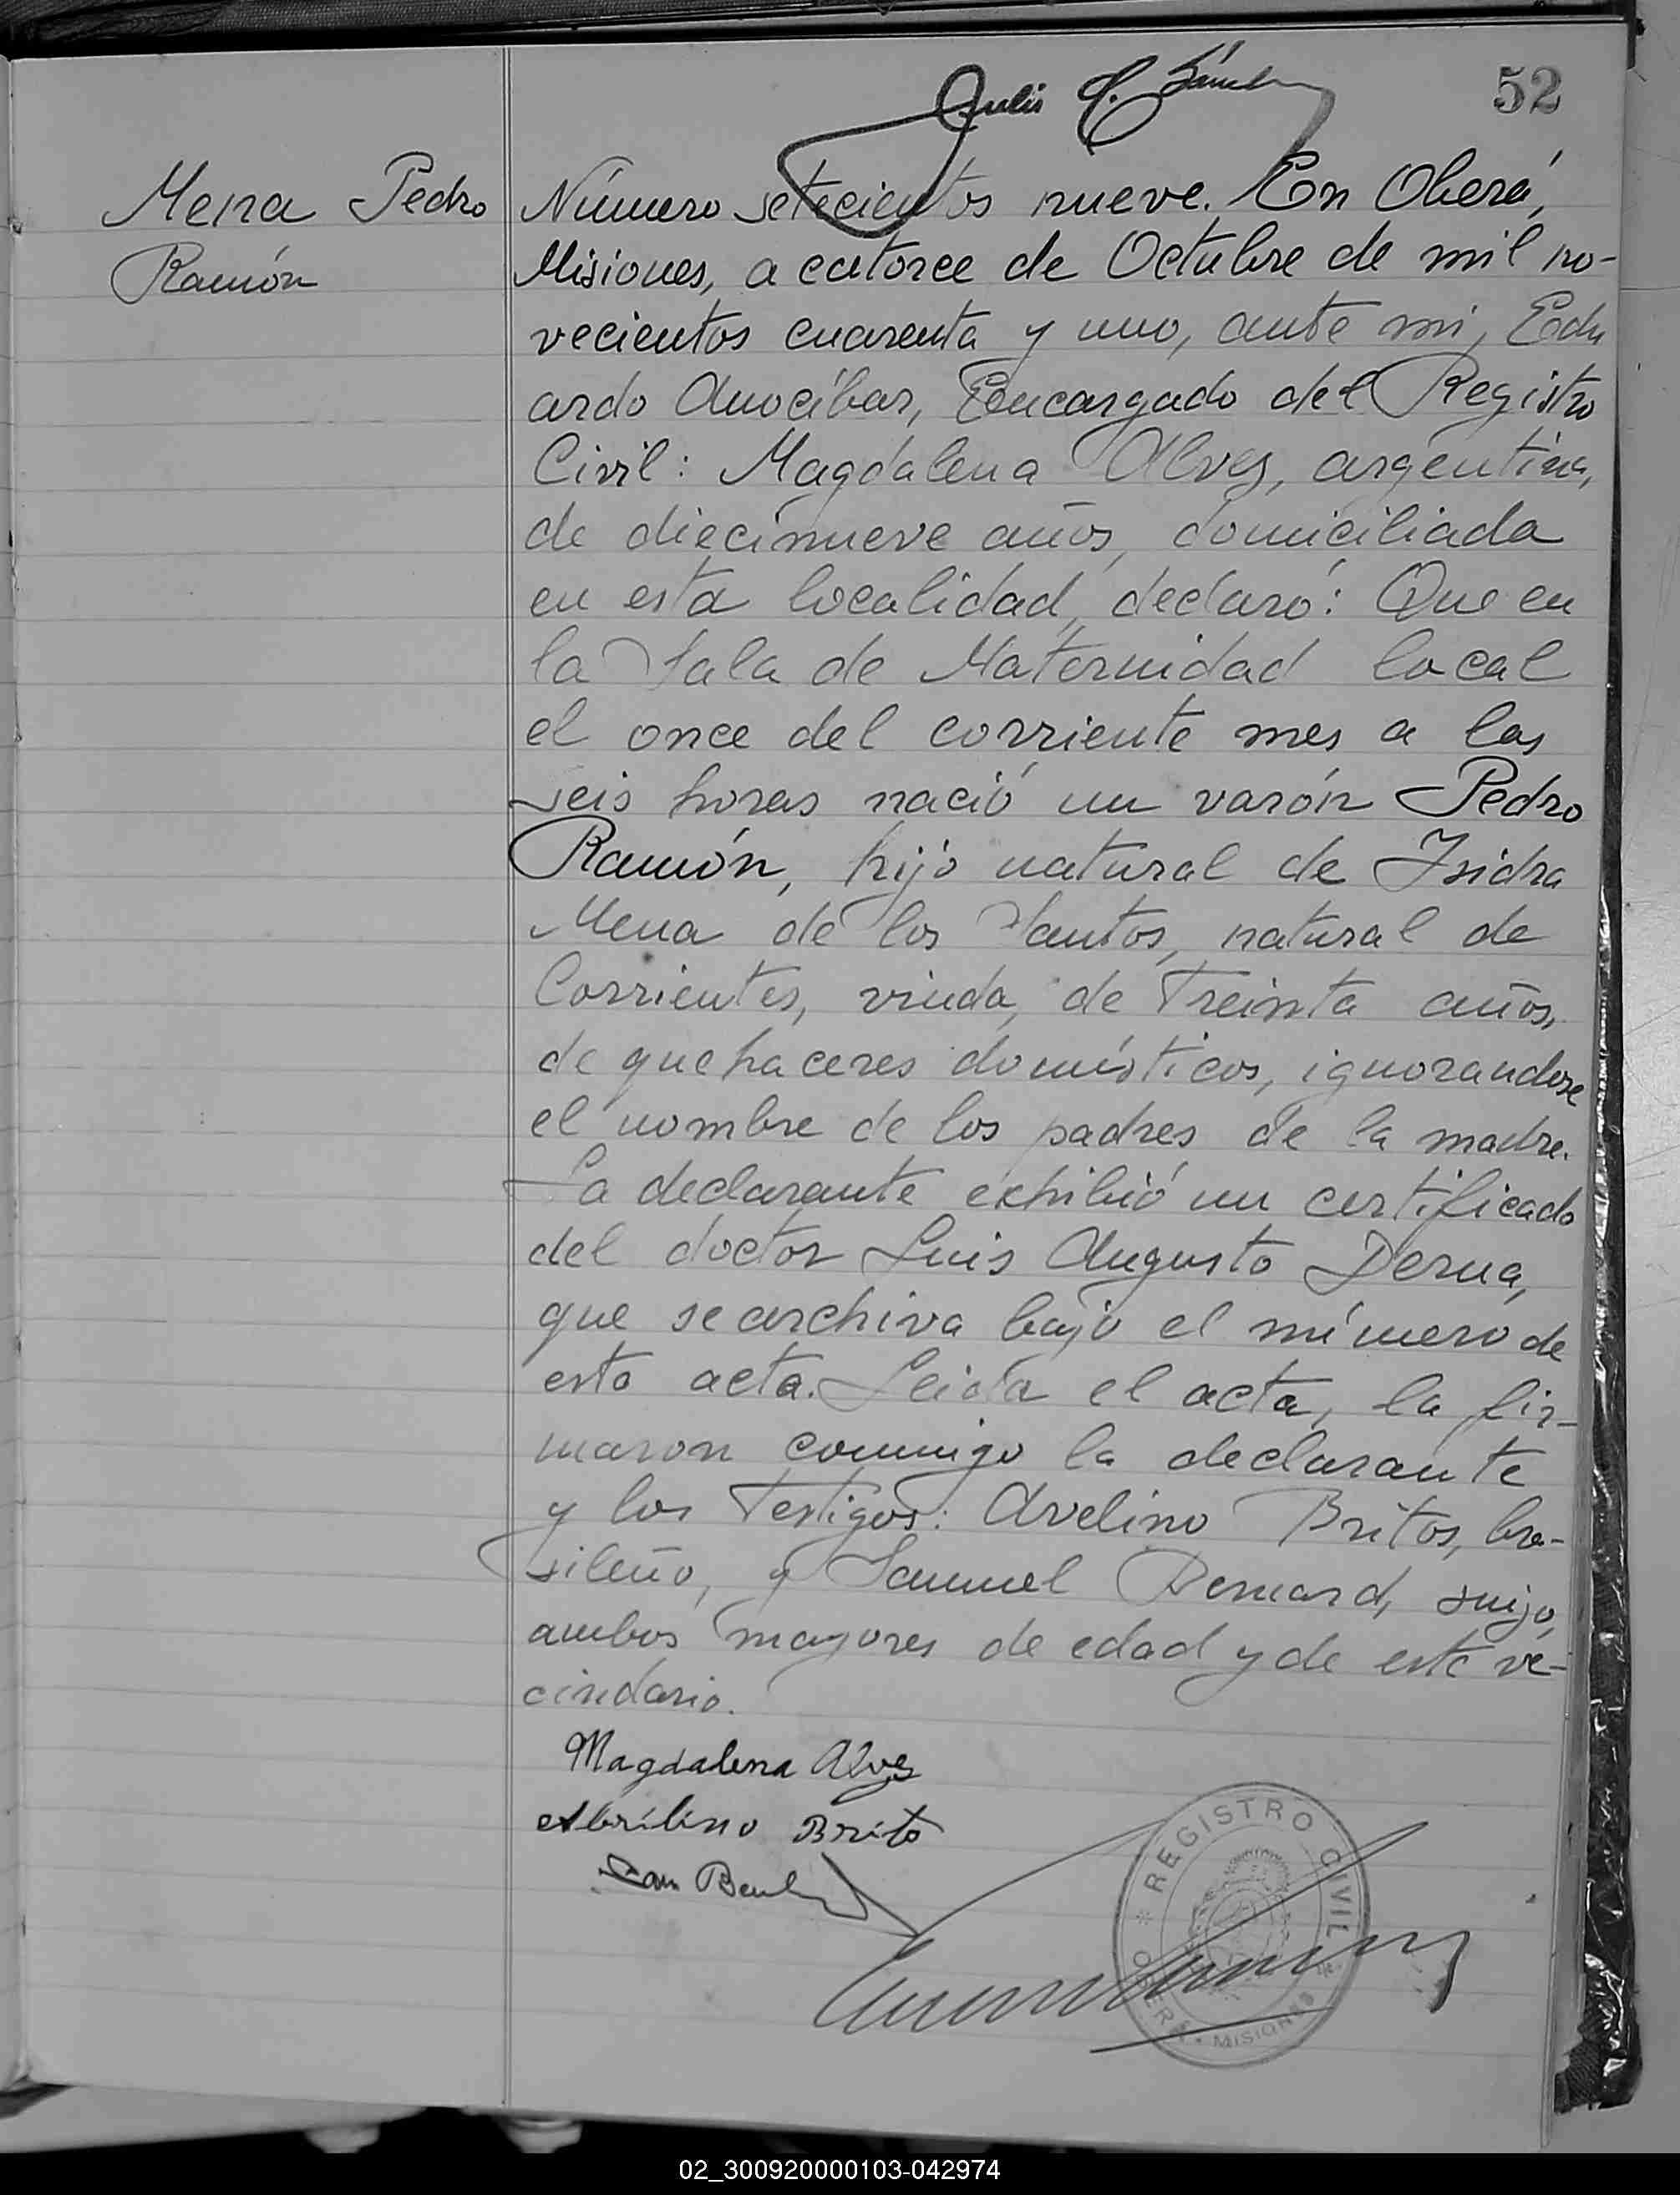 52
Mena Pedro
Ramón
Número setecientos nueve. En Oberá,
Misiones, a catorce de Octubre de mil no-
vecientos cuarenta y uno, ante mi, Edu
ardo Anocíbar, Encargado del Registro
Civil: Magdalena Alves, argentina,
de diecinueve años, domiciliada
en esta localidad, declaró: Que en
la Sala de Maternidad local
el once del corriente mes a las
seis horas nació un varón Pedro
Ramón, hijo natural de Isidra
Mena de los Santos, natural de
Corrientes, viuda, de treinta años,
de quehaceres domésticos, ignorandose
el nombre de los padres de la madre.
La declarante exhibió un certificado
del doctor Luis Augusto Derna,
que se archiva bajo el número de
esta acta. Leida el acta, la fir-
maron conmigo la declarante
y los testigos: Avelino Britos, bra-
sileño, y Samuel Bernard, suizo,
ambos mayores de edad y de este ve-
cindario.
Magdalena Alves
Abrilino Brito
REGISTRO CIVIL
OBERÁ - MISIONES
02_300920000103-042974